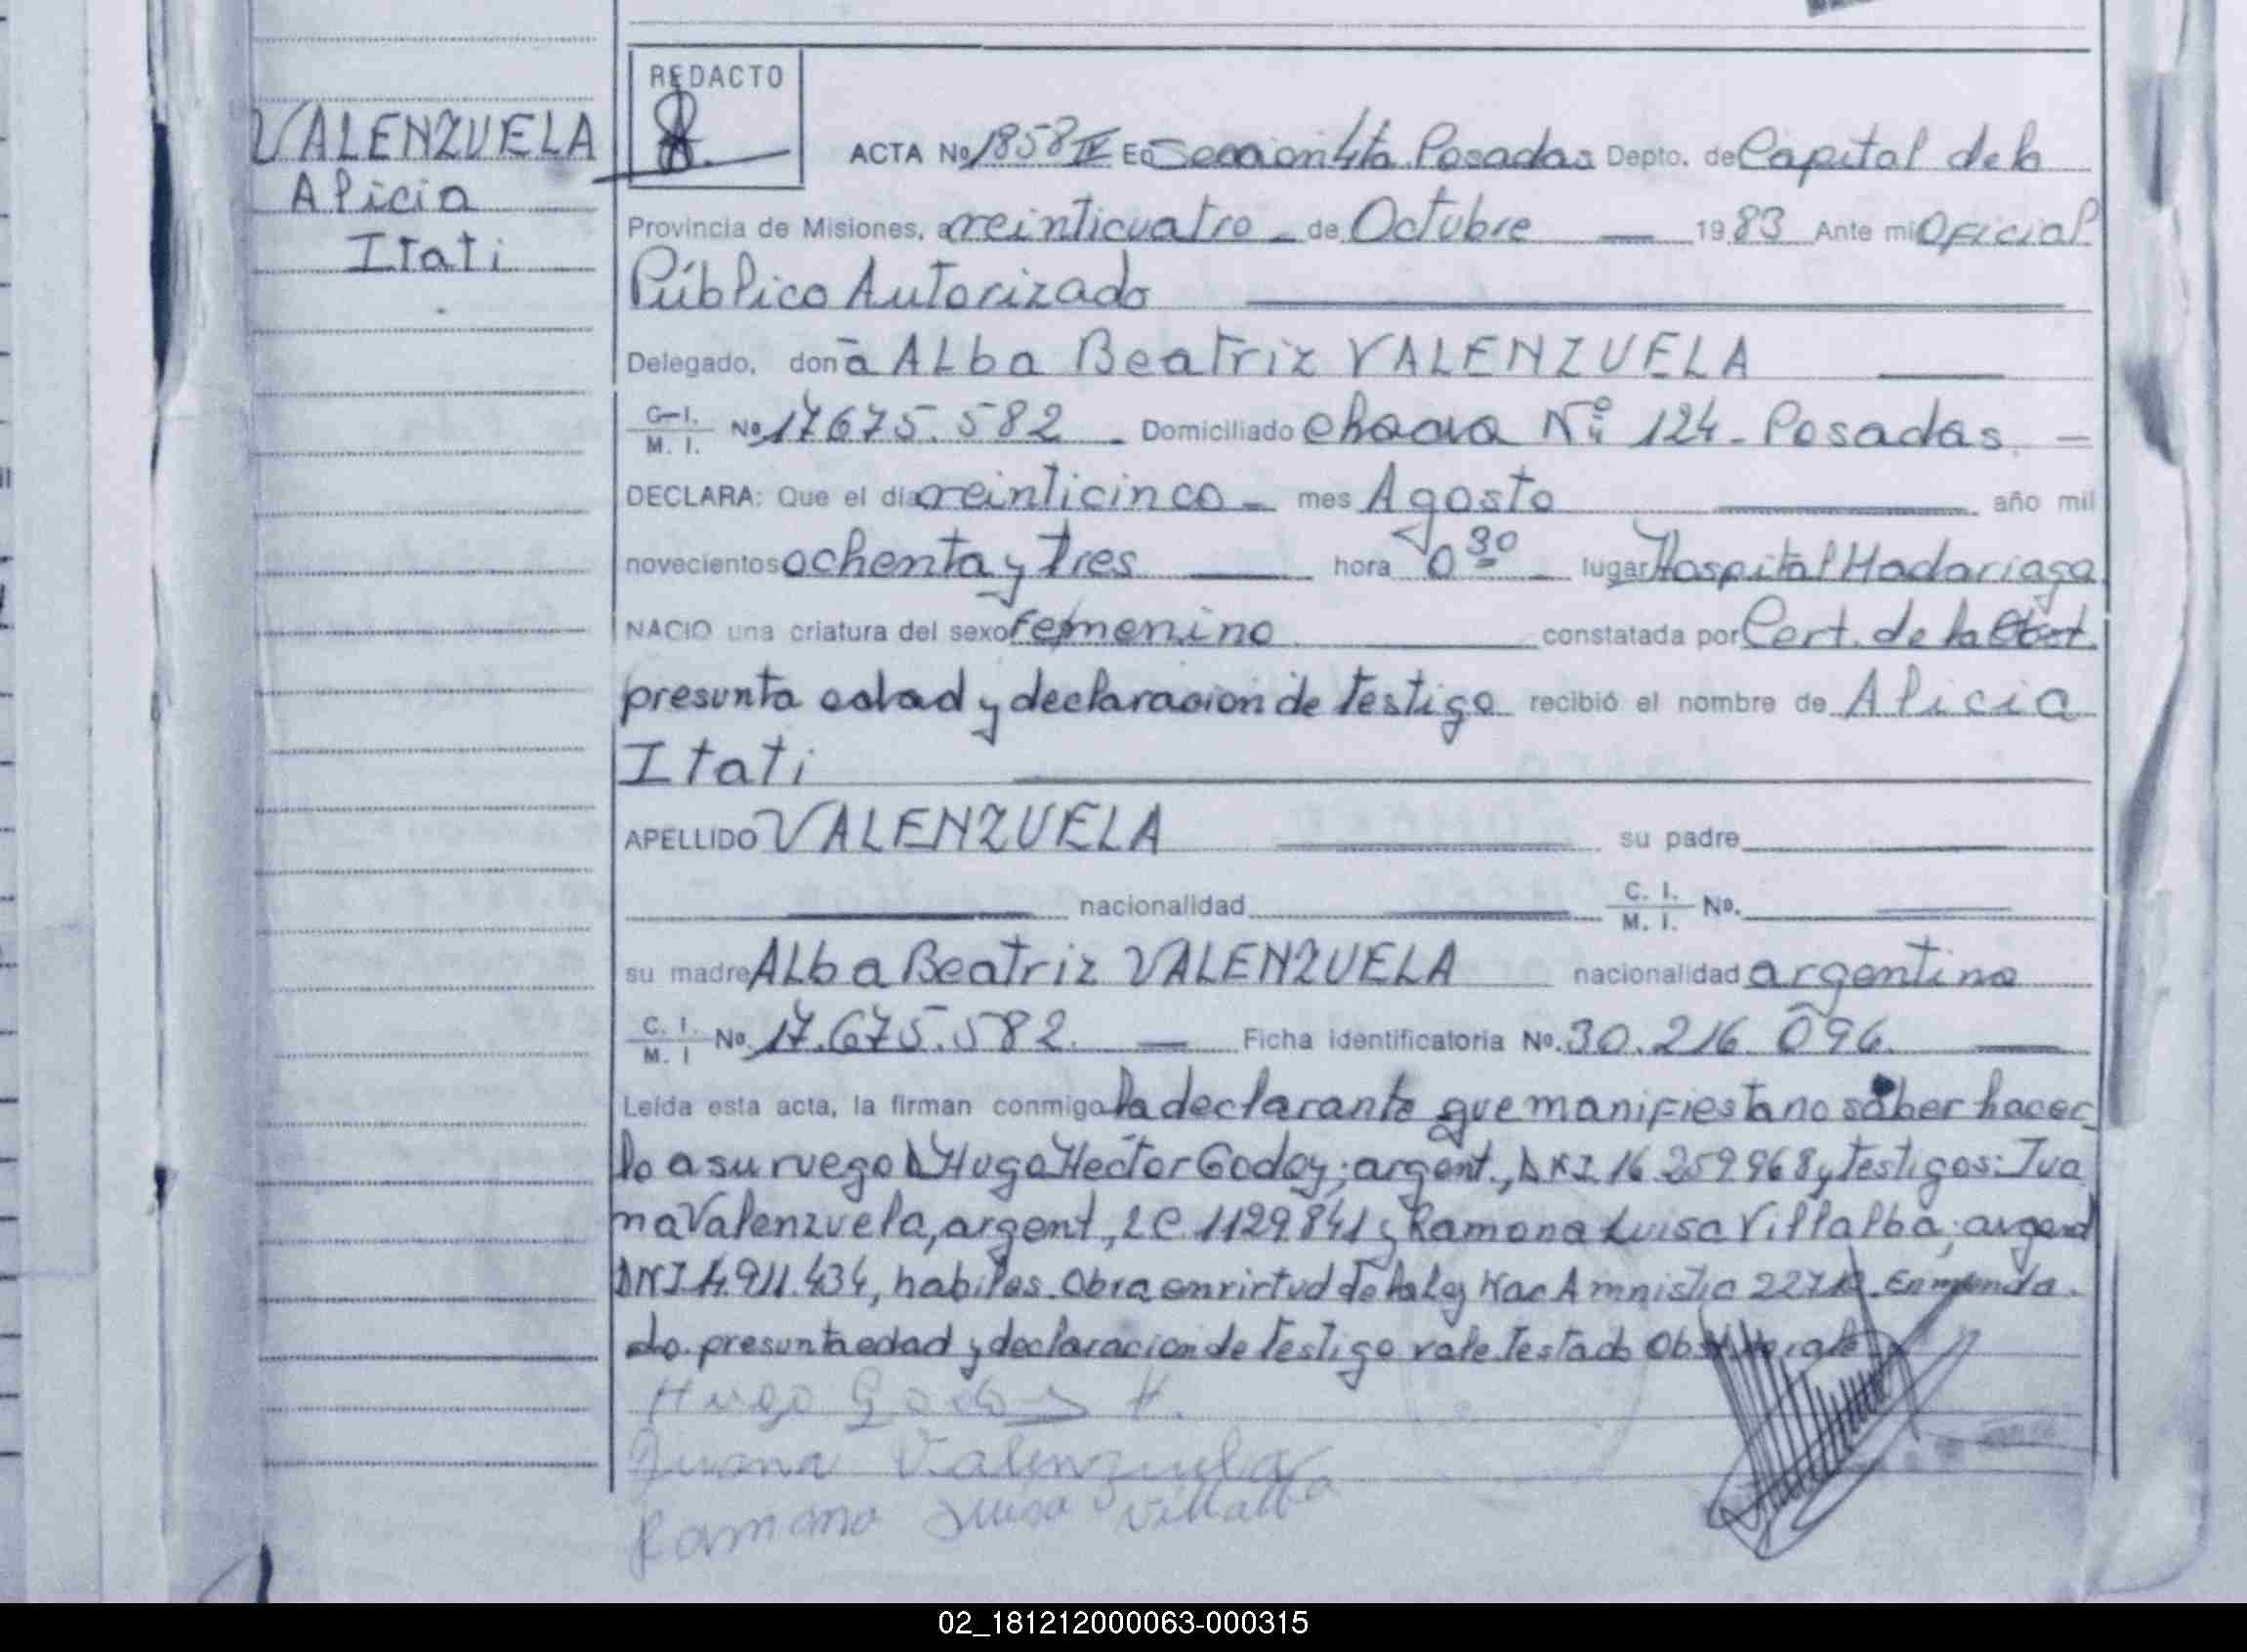 VALENZUELA
Alicia
Itati
REDACTO
ACTA No 1858 IV En Seccion 4ta Posadas Depto. de Capital de la
Provincia de Misiones, a veinticuatro - de Octubre — 1983 Ante mi Oficial
Público Autorizado
Delegado, don a ALba Beatriz VALENZUELA
C.I. M.I. No 17675.582 - Domiciliado chacra Nº 124 - Posadas -
DECLARA: Que el día veinticinco - mes Agosto año mil
novecientos ochenta y tres hora 0 30 - lugar Hospital Madariaga
NACIO una criatura del sexo femenino constatada por Cert. de la Obst.
presunta edad y declaracion de testigo recibió el nombre de Alicia
Itati
APELLIDO VALENZUELA su padre
nacionalidad C. I. M. I. No.
su madre ALba Beatriz VALENZUELA nacionalidad argentina
C. I. M. I No. 17.675.582. — Ficha identificatoria No. 30.216.096.
Leída esta acta, la firman conmigo la declarante que manifiesta no saber hacer
lo a su ruego D Hugo Hector Godoy; argent., DNI 16.259.968 y testigos: Jua
na Valenzuela, argent., LC. 1129.841 y Ramona Luisa Villalba; argent
DNI 4.911.434, habiles. Obra en virtud de la Ley Nac Amnistia Enmenda
do. presunta edad y declaracion de testigo vale. Testado Obst
Hugo Godoy H.
Juana Valenzuela
Ramona Luisa Villalba
02_181212000063-000315